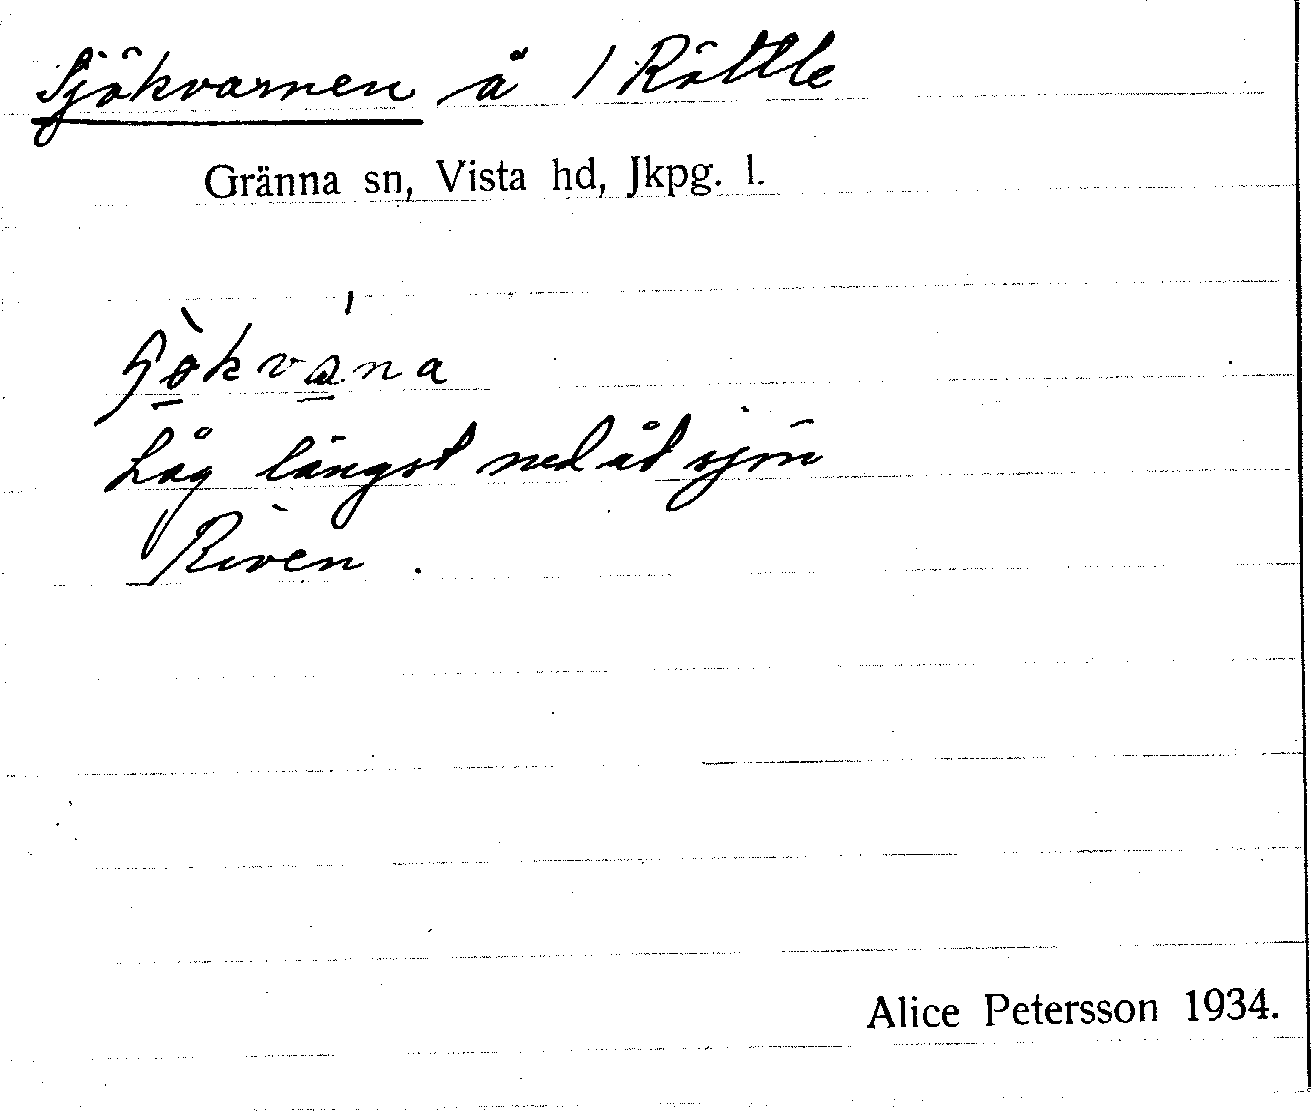 Sjökvarnen å 1 Röttle
Gränna sn, Vista hd, Jkpg. l.
Låg längst ned åt sjön
Riven.
Alice Petersson 1934.